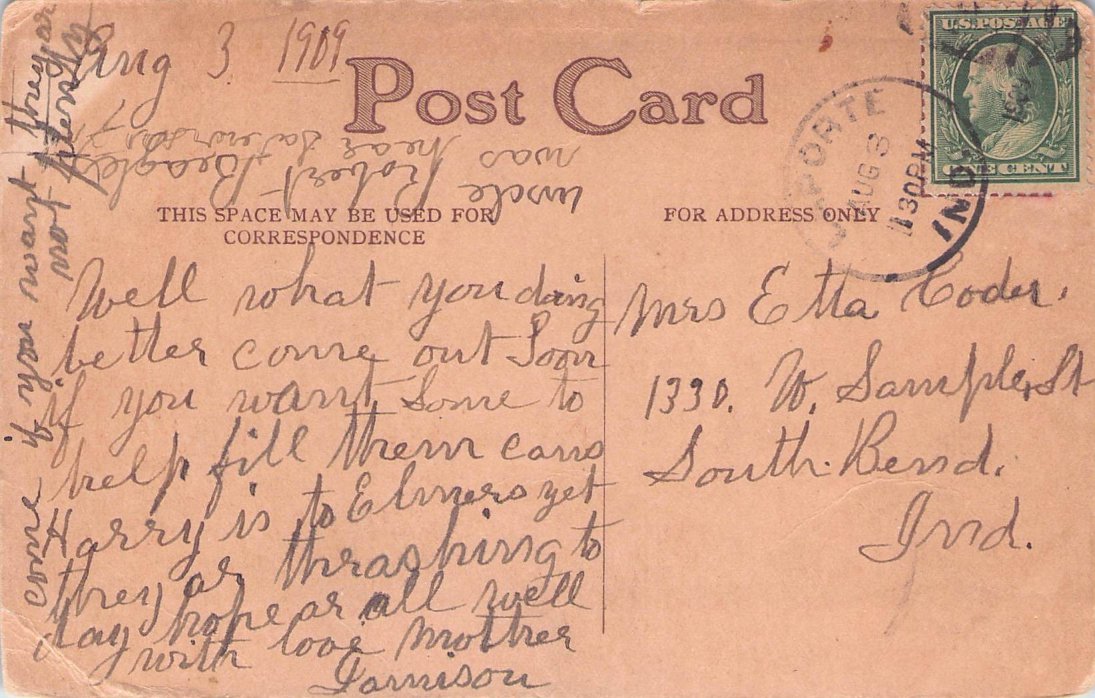 Aug 3 1909
Post Card
uncle Robert Beagles
was hear
THIS SPACE MAY BE USED FOR
CORRESPONDENCE
Well what you doing
better come out Soon
if you want Some to
help fill them cans
Harry is to Elmers yet
they ar thrashing to
day hope ar all well
with love Mother
Jamison
come if you want they ar
now
FOR ADDRESS ONLY
U.S. POSTAGE
ONE CENT
LAPORTE
AUG 3
1130PM
1909
IND.
Mrs Etta Coder.
1330. W. Sample St
South Bend.
Ind.